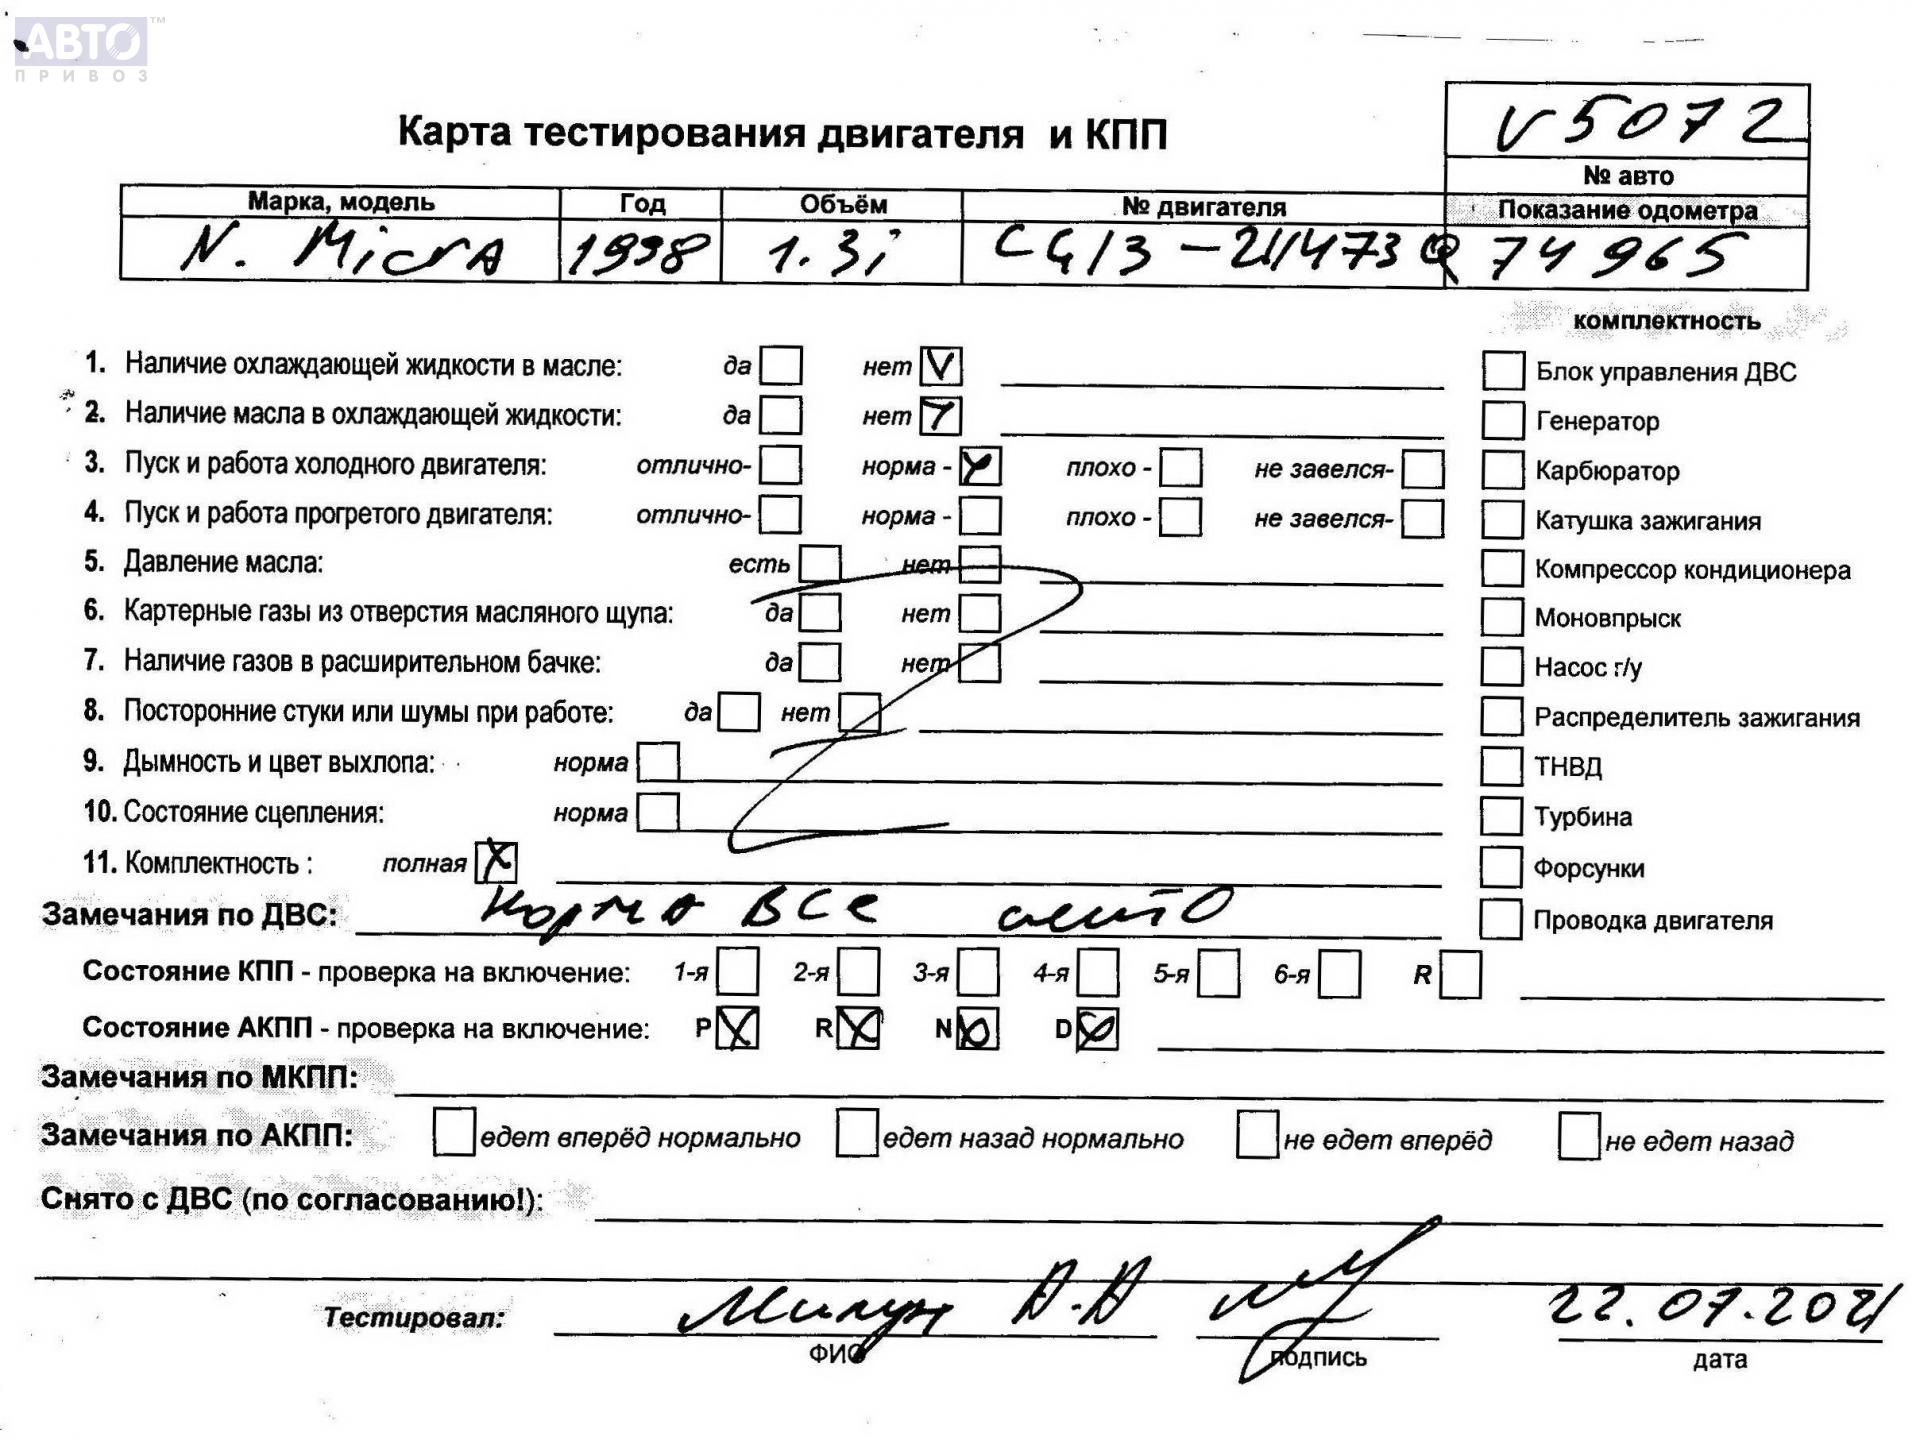 АВТО™
ПРИВОЗ
V5072
Карта тестирования двигателя и КПП
№ авто
Марка, модель Год Объём № двигателя Показание одометра
N. Micra 1998 1.3i CG13-211473Q 74965
комплектность
1. Наличие охлаждающей жидкости в масле: да нет V Блок управления ДВС
2. Наличие масла в охлаждающей жидкости: да нет Генератор
3. Пуск и работа холодного двигателя: отлично- норма - плохо - не завелся- Карбюратор
4. Пуск и работа прогретого двигателя: отлично- норма - плохо - не завелся- Катушка зажигания
5. Давление масла: есть нет Компрессор кондиционера
6. Картерные газы из отверстия масляного щупа: да нет Моновпрыск
7. Наличие газов в расширительном бачке: да нет Насос г/у
8. Посторонние стуки или шумы при работе: да нет Распределитель зажигания
9. Дымность и цвет выхлопа: норма ТНВД
10. Состояние сцепления: норма Турбина
11. Комплектность : полная X Форсунки
Замечания по ДВС: Норма все Проводка двигателя
Состояние КПП - проверка на включение: 1-я 2-я 3-я 4-я 5-я 6-я R
Состояние АКПП - проверка на включение: P X R X N D
Замечания по МКПП:
Замечания по АКПП: едет вперёд нормально едет назад нормально не едет вперёд не едет назад
Снято с ДВС (по согласованию!):
Тестировал: А.А 22.07.2021
ФИО подпись дата